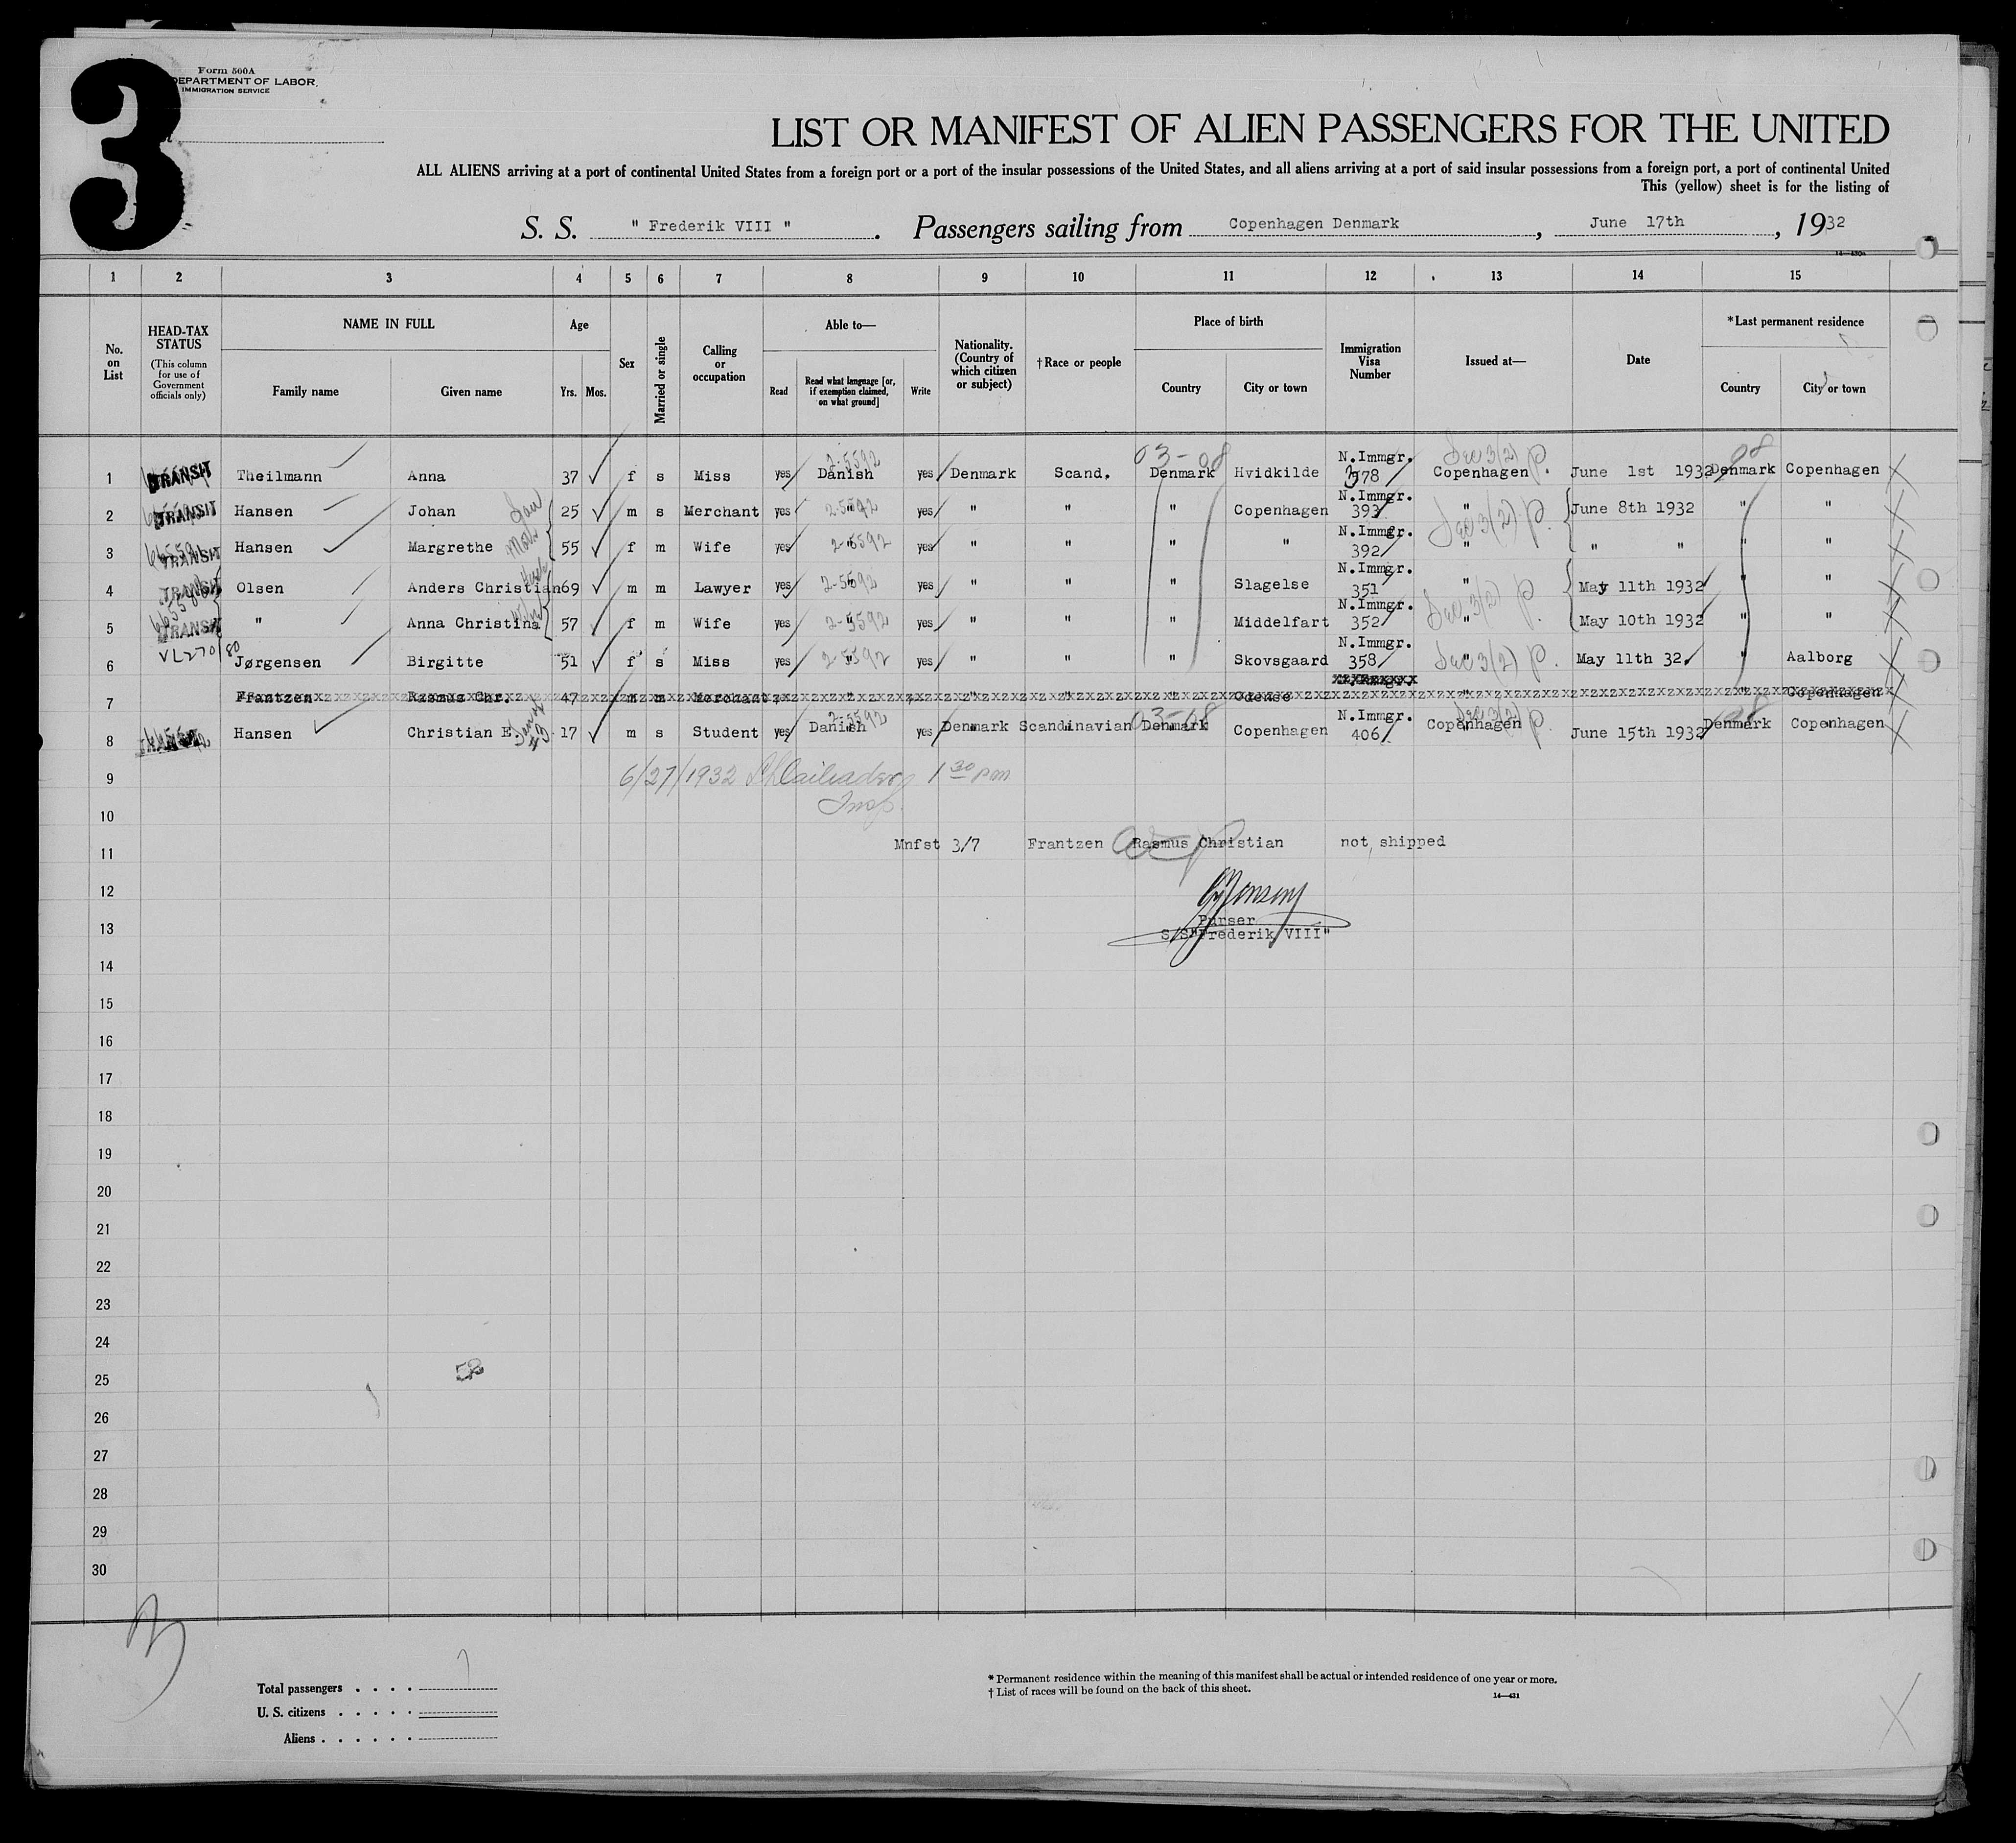 3
Form 500A
DEPARTMENT OF LABOR
IMMIGRATION SERVICE
LIST OR MANIFEST OF ALIEN PASSENGERS FOR THE UNITED
ALL ALIENS arriving at a port of continental United States from a foreign port or a port of the insular possessions of the United States, and all aliens arriving at a port of said insular possessions from a foreign port, a port of continental United
This (yellow) sheet is for the listing of
S. S. " Frederik VIII " . Passengers sailing from Copenhagen Denmark , June 17th , 1932
1 2 3 4 5 6 7 8 9 10 11 12 13 14 15
No. on List
HEAD-TAX STATUS
(This column for use of Government officials only)
NAME IN FULL
Family name Given name
Age
Yrs. Mos.
Sex
Married or single
Calling or occupation
Able to—
Read Read what language [or, if exemption claimed, on what ground] Write
Nationality. (Country of which citizen or subject)
† Race or people
Place of birth
Country City or town
Immigration Visa Number
Issued at—
Date
*Last permanent residence
Country City or town
03-08
1 TRANSIT Theilmann Anna 37 ✓ f s Miss yes Danish 2-5592 yes Denmark Scand. Denmark Hvidkilde N.Immgr. 378 Copenhagen Sec 3(2) P. June 1st 1932 Denmark Copenhagen
2 TRANSIT Hansen Johan 25 ✓ m s Merchant yes " 2-5592 yes " " " Copenhagen N.Immgr. 393 " Sec 3(2) P. June 8th 1932 " "
3 TRANSIT Hansen Margrethe 55 ✓ f m Wife yes " 2-5592 yes " " " " N.Immgr. 392 " " " " "
4 TRANSIT Olsen Anders Christian 69 ✓ m m Lawyer yes " 2-5592 yes " " " Slagelse N.Immgr. 351 " Sec 3(2) P. May 11th 1932 " "
5 TRANSIT " Anna Christina 57 ✓ f m Wife yes " 2-5592 yes " " " Middelfart N.Immgr. 352 " May 10th 1932 " "
6 Jørgensen Birgitte 51 ✓ f s Miss yes " 2-5592 yes " " " Skovsgaard N.Immgr. 358 " Sec 3(2) P. May 11th 32. " Aalborg
7 Frantzen Rasmus Chr. 47 m m Merchant " " " " Odense " " Copenhagen
8 Hansen Christian E. 17 ✓ m s Student yes Danish 2-5592 yes Denmark Scandinavian Denmark Copenhagen N.Immgr. 406 Copenhagen Sec 3(2) P. June 15th 1932 Denmark Copenhagen
9 6/27/1932 1 30 pm
Insp.
10
11 Mnfst 3/7 Frantzen Rasmus Christian not shipped
12
13 Purser
S/S "Frederik VIII"
14
15
16
17
18
19
20
21
22
23
24
25
26
27
28
29
30
3
Total passengers . . . . 7
U. S. citizens . . . . .
Aliens . . . . . .
* Permanent residence within the meaning of this manifest shall be actual or intended residence of one year or more.
† List of races will be found on the back of this sheet.
14—431